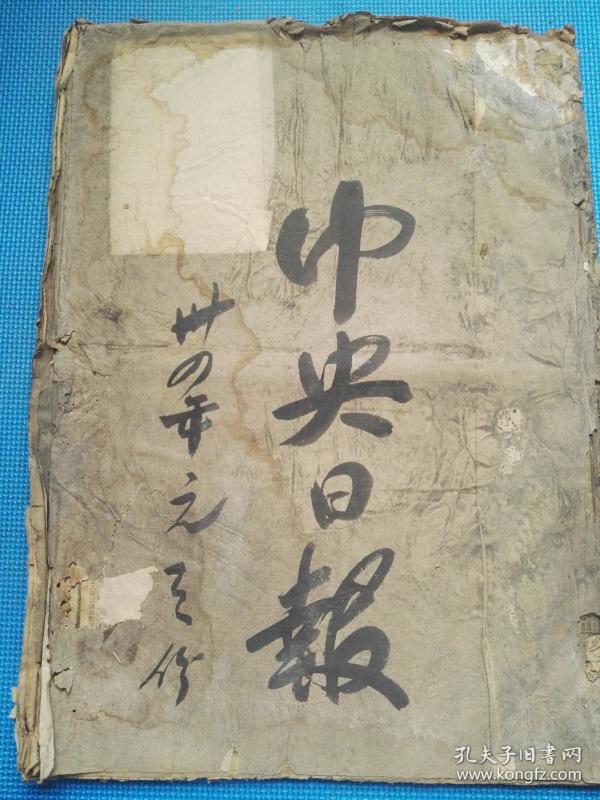 中央日報
卅四年元份
孔夫子旧书网
www.kongfz.com